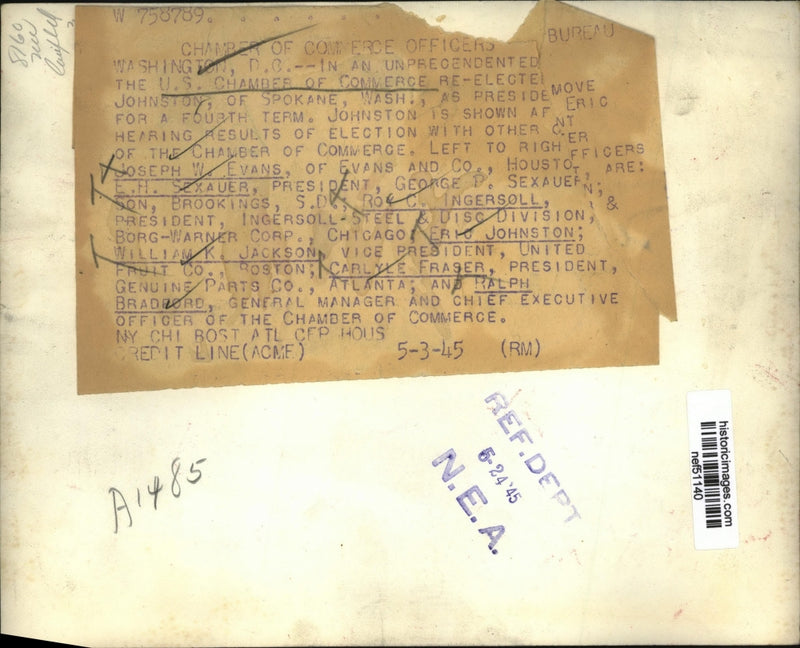 W 758789. . . . . . . BUREAU
CHAMBER OF COMMERCE OFFICERS
WASHINGTON, D.C.--IN AN UNPRECENDENTED MOVE
THE U.S. CHAMBER OF COMMERCE RE-ELECTE ERIC
JOHNSTON, OF SPOKANE, WASH., AS PRESIDE NT
FOR A FOURTH TERM. JOHNSTON IS SHOWN AF ER
HEARING RESULTS OF ELECTION WITH OTHER O FFICERS
OF THE CHAMBER OF COMMERCE. LEFT TO RIGH T, ARE:
JOSEPH W. EVANS, OF EVANS AND CO., HOUSTO N;
E.H. SEXAUER, PRESIDENT, GEORGE P. SEXAUER &
SON, BROOKINGS, S.D.; ROY C. INGERSOLL,
PRESIDENT, INGERSOLL-STEEL & DISC DIVISION,
BORG-WARNER CORP., CHICAGO; ERIC JOHNSTON;
WILLIAM K. JACKSON, VICE PRESIDENT, UNITED
FRUIT CO., BOSTON; CARLYLE FRASER, PRESIDENT,
GENUINE PARTS CO., ATLANTA; AND RALPH
BRADFORD, GENERAL MANAGER AND CHIEF EXECUTIVE
OFFICER OF THE CHAMBER OF COMMERCE.
NY CHI BOST ATL CFP HOUS
CREDIT LINE(ACME) 5-3-45 (RM)
A1485
REF. DEPT
5-24'45
N.E.A.
historicimages.com
nef51140